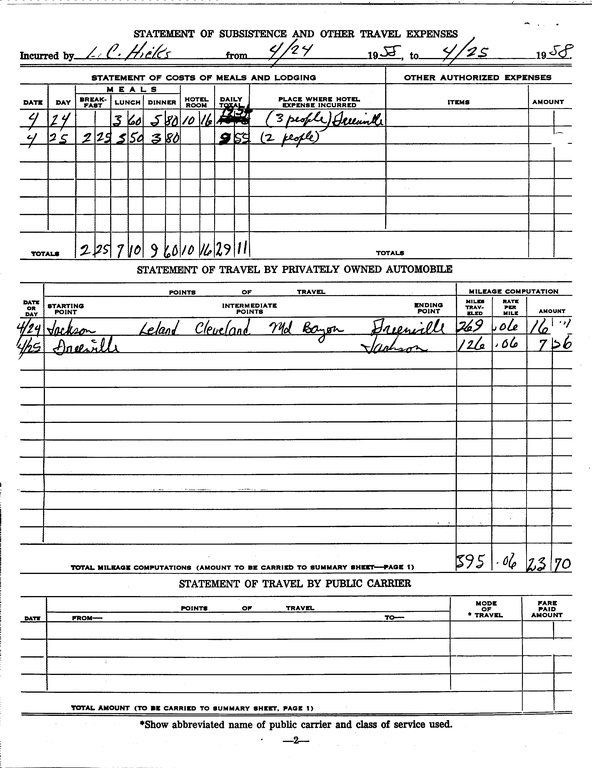 STATEMENT OF SUBSISTENCE AND OTHER TRAVEL EXPENSES
Incurred by L. C. Hicks from 4/24 1958, to 4/25 1958.
STATEMENT OF COSTS OF MEALS AND LODGING OTHER AUTHORIZED EXPENSES
MEALS
DATE DAY BREAK-FAST LUNCH DINNER HOTEL ROOM DAILY TOTAL PLACE WHERE HOTEL EXPENSE INCURRED ITEMS AMOUNT
4 24 3 60 5 80 10 16 (3 people) Greenville
4 25 2 25 3 50 3 80 9 55 (2 people)
TOTALS 2 25 7 10 9 60 10 16 29 11 TOTALS
STATEMENT OF TRAVEL BY PRIVATELY OWNED AUTOMOBILE
POINTS OF TRAVEL MILEAGE COMPUTATION
DATE OR DAY STARTING POINT INTERMEDIATE POINTS ENDING POINT MILES TRAV-ELED RATE PER MILE AMOUNT
4/24 Jackson Leland Cleveland Md Bayou Greenville 269 .06 16
4/25 Greenville Jackson 126 .06 7 56
TOTAL MILEAGE COMPUTATIONS (AMOUNT TO BE CARRIED TO SUMMARY SHEET—PAGE 1) 395 .06 23 70
STATEMENT OF TRAVEL BY PUBLIC CARRIER
POINTS OF TRAVEL
DATE FROM— TO— MODE OF * TRAVEL FARE PAID AMOUNT
TOTAL AMOUNT (TO BE CARRIED TO SUMMARY SHEET, PAGE 1)
*Show abbreviated name of public carrier and class of service used.
—2—